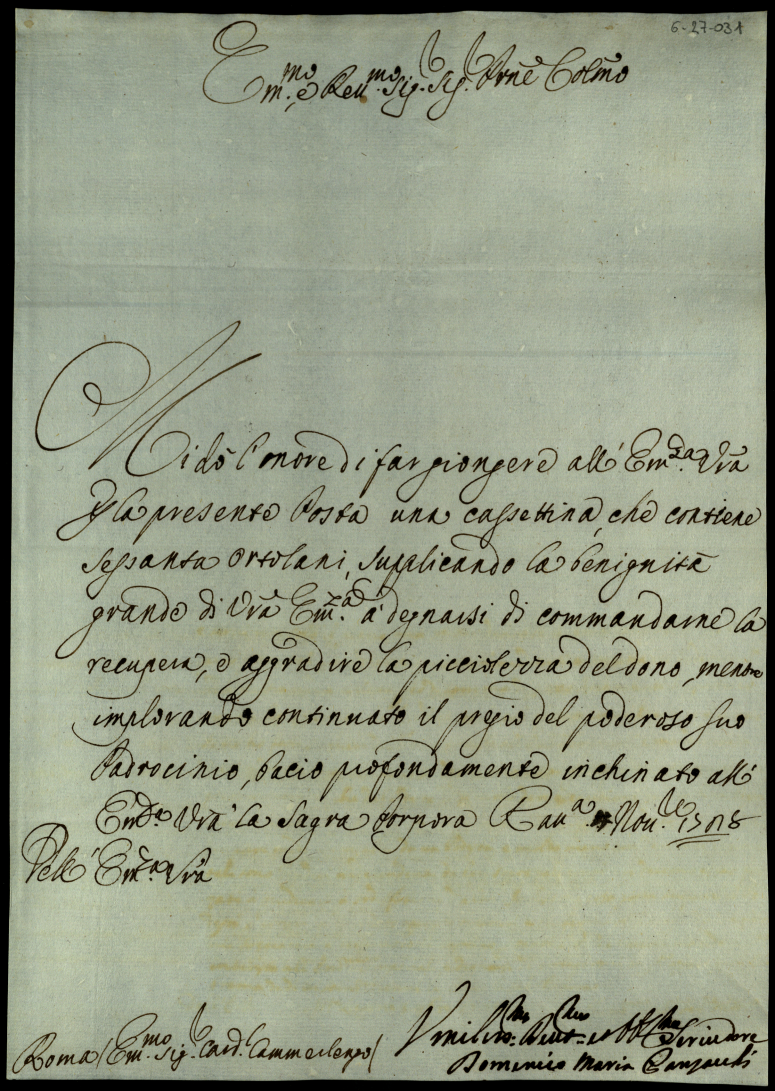 6-27-031
Em.mo e Reu.mo Sig.r Sig.r Prne Colmo
Mi dò l'onore di far giongere all' Em.za Vra
p la presente Posta una cassettina, che contiene
sessanta ortolani, supplicando la benignità
grande di Vra Em.za à degnarsi di commandarne la
recupera, e aggradire la picciolezza del dono, mentre
implorando continuato il pregio del poderoso suo
Padrocinio, bacio profondamente inchinato all'
Em.za Vra la Sagra Porpora Rau.a Nou.re
Dell' Em.za Vra
Roma / Em.mo Sig.r Card. Cammerlengo /
Umiliss.mo Deuot.mo et Obb.mo Seruidore
Domenico Maria